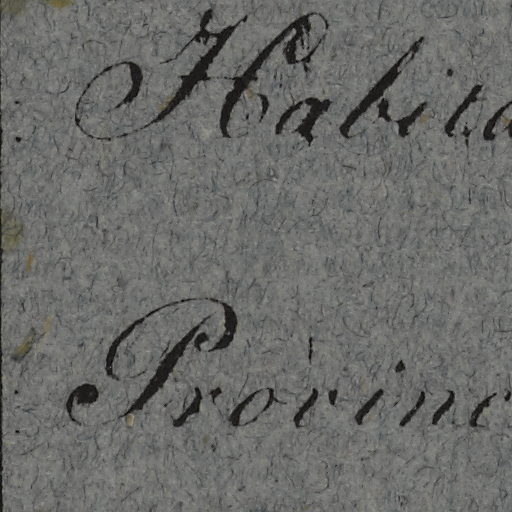 Habita
Provinc